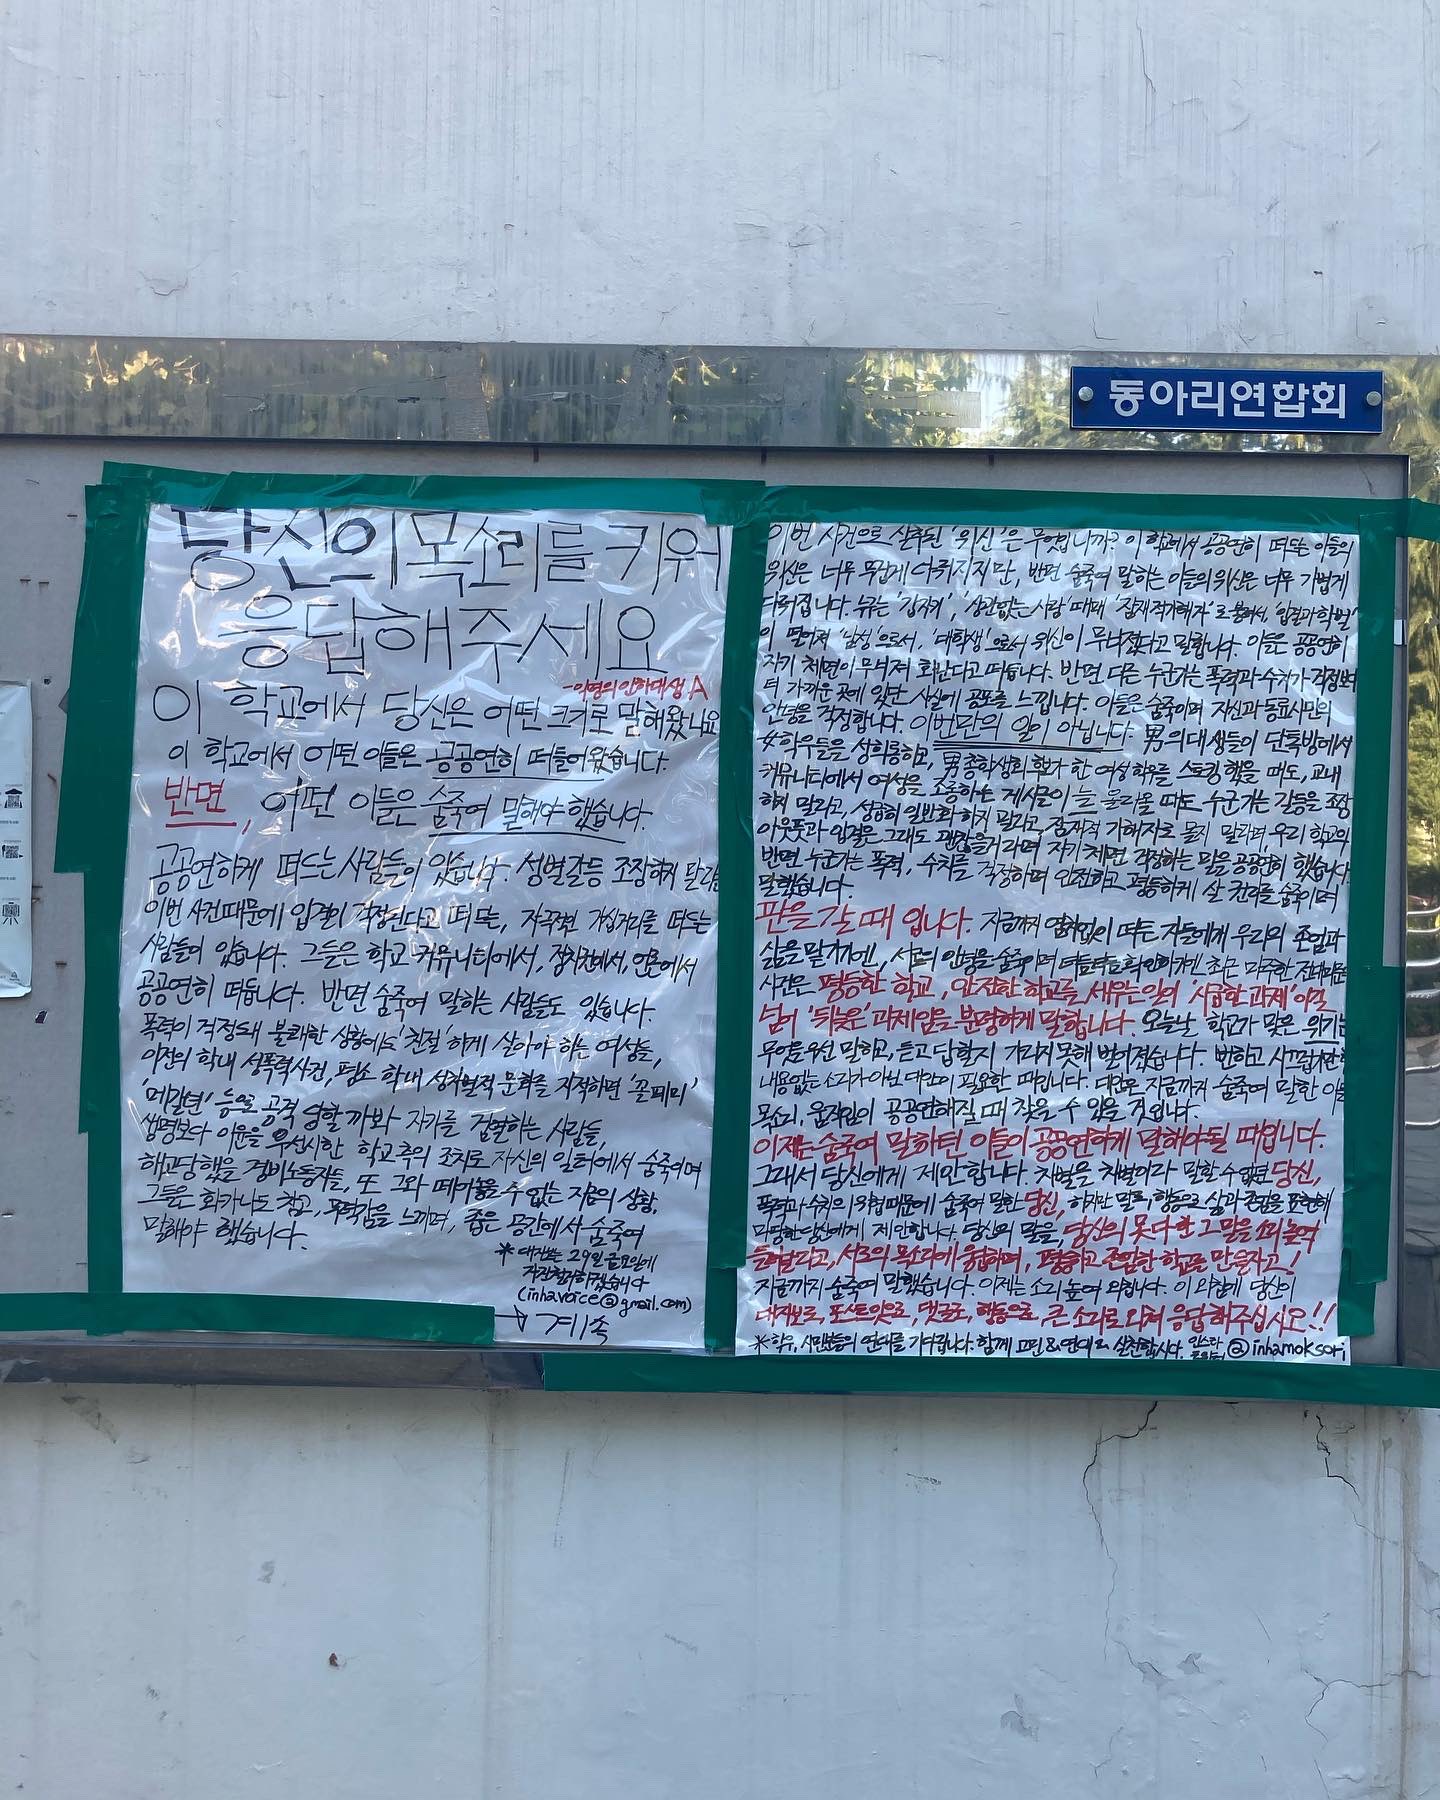 동아리연합회
당신의 목소리를 키워
응답해주세요
-익명의 인하대생 A
이 학교에서 당신은 어떤 크기로 말해왔나요
이 학교에서 어떤 이들은 공공연히 떠들어왔습니다.
반면, 어떤 이들은 숨죽여 말해야 했습니다.
공공연하게 떠드는 사람들이 있습니다. 성별갈등 조장하지 말라
이번 사건때문에 입결이 걱정된다고 떠드는, 자극적인 가십거리를 떠드는
사람들이 있습니다. 그들은 학교 커뮤니티에서, 정치권에서, 언론에서
공공연히 떠듭니다. 반면 숨죽여 말하는 사람들도 있습니다.
폭력이 걱정돼 불쾌한 상황에도 '친절'하게 살아야 하는 여성들,
이전의 학내 성폭력사건, 평소 학내 성차별적 문화를 지적하면 '꼴페미'
'메갈년' 등으로 공격 당할까봐 자기를 검열하는 사람들,
생명보다 이윤을 우선시한 학교측의 조치로 자신의 일터에서 숨죽이며
해고당했을 경비노동자들, 또 그와 떼어놓을 수 없는 지금의 상황,
그들은 화가나도 참고, 무력감을 느끼며, 좁은 공간에서 숨죽여
말해야 했습니다.
* 대자보는 29일 금요일에
자진철거하겠습니다
(inhavoice@gmail.com)
→ 계속
이번 사건으로 실추된 '위신'은 무엇입니까? 이 학교에서 공공연히 떠드는 이들의
위신은 너무 무겁게 다뤄지지만, 반면 숨죽여 말하는 이들의 위신은 너무 가볍게
다뤄집니다. 누구는 '갑자기', '상관없는 사람' 때문에 '잠재적가해자'로 몰려서, '입결과 학벌'
이 떨어져 '남성'으로서, '대학생'으로서 위신이 무너졌다고 말합니다. 이들은 공공연히
자기 체면이 무너져 화난다고 떠듭니다. 반면 다른 누군가는 폭력과 수치가 걱정보다
더 가까운 곳에 있단 사실에 공포를 느낍니다. 이들은 숨죽이며 자신과 동료시민의
안녕을 걱정합니다. 이번만의 일이 아닙니다. 男의대생들이 단톡방에서
女학우들을 성희롱하고, 男총학생회후보가 한 여성학우를 스토킹 했을 때도, 교내
커뮤니티에서 여성을 조롱하는 게시글이 늘 올라올 때도 누군가는 갈등을 조장
하지 말라고, 성급히 일반화 하지 말라고, 잠재적 가해자로 몰지 말라며, 우리 학교의
아웃풋과 입결은 그래도 괜찮을거라며 자기 체면 걱정하는 말을 공공연히 했습니다.
반면 누군가는 폭력, 수치를 걱정하며 안전하고 평등하게 살 권리를 숨죽이며
말했습니다.
판을 갈 때 입니다. 지금까지 염치없이 떠든 자들에게 우리의 존엄과
삶을 맡기기엔, 서로의 안녕을 숨죽이며 더듬더듬 확인하기엔 최근 마주한
사건은 평등한 학교, 안전한 학교를 세우는일의 '시급한 과제'이길
넘어 '뒤늦은' 과제임을 분명하게 말합니다. 오늘날 학교가 맞은 위기는
무엇을 우선 말하고, 듣고 답할지 가리지 못해 벌어졌습니다. 뻔하고 시끄럽기만 한
내용없는 소리가 아닌 대안이 필요한 때입니다. 대안은 지금까지 숨죽여 말한 이들
목소리, 움직임이 공공연해질 때 찾을 수 있을 것입니다.
이제는 숨죽여 말하던 이들이 공공연하게 말해야될 때입니다.
그래서 당신에게 제안합니다. 차별을 차별이라 말할 수 없던 당신,
폭력과 수치의 위험 때문에 숨죽여 말한 당신, 하지만 말로, 행동으로 삶과 존엄을 표현해
마땅한 당신에게 제안합니다. 당신의 말을, 당신의 못다한 그 말을 소리높여
들려달라고, 서로의 목소리에 응답하며, 평등하고 존엄한 학교를 만들자고!
지금까지 숨죽여 말했습니다. 이제는 소리 높여 외칩니다. 이 외침에 당신의
대자보로, 포스트잇으로, 댓글로, 행동으로, 큰 소리로 외쳐 응답해주십시오!!
* 학우, 시민분들의 연대를 기다립니다. 함께 고민&연대로 실천합시다. 인스타 @inhamoksori